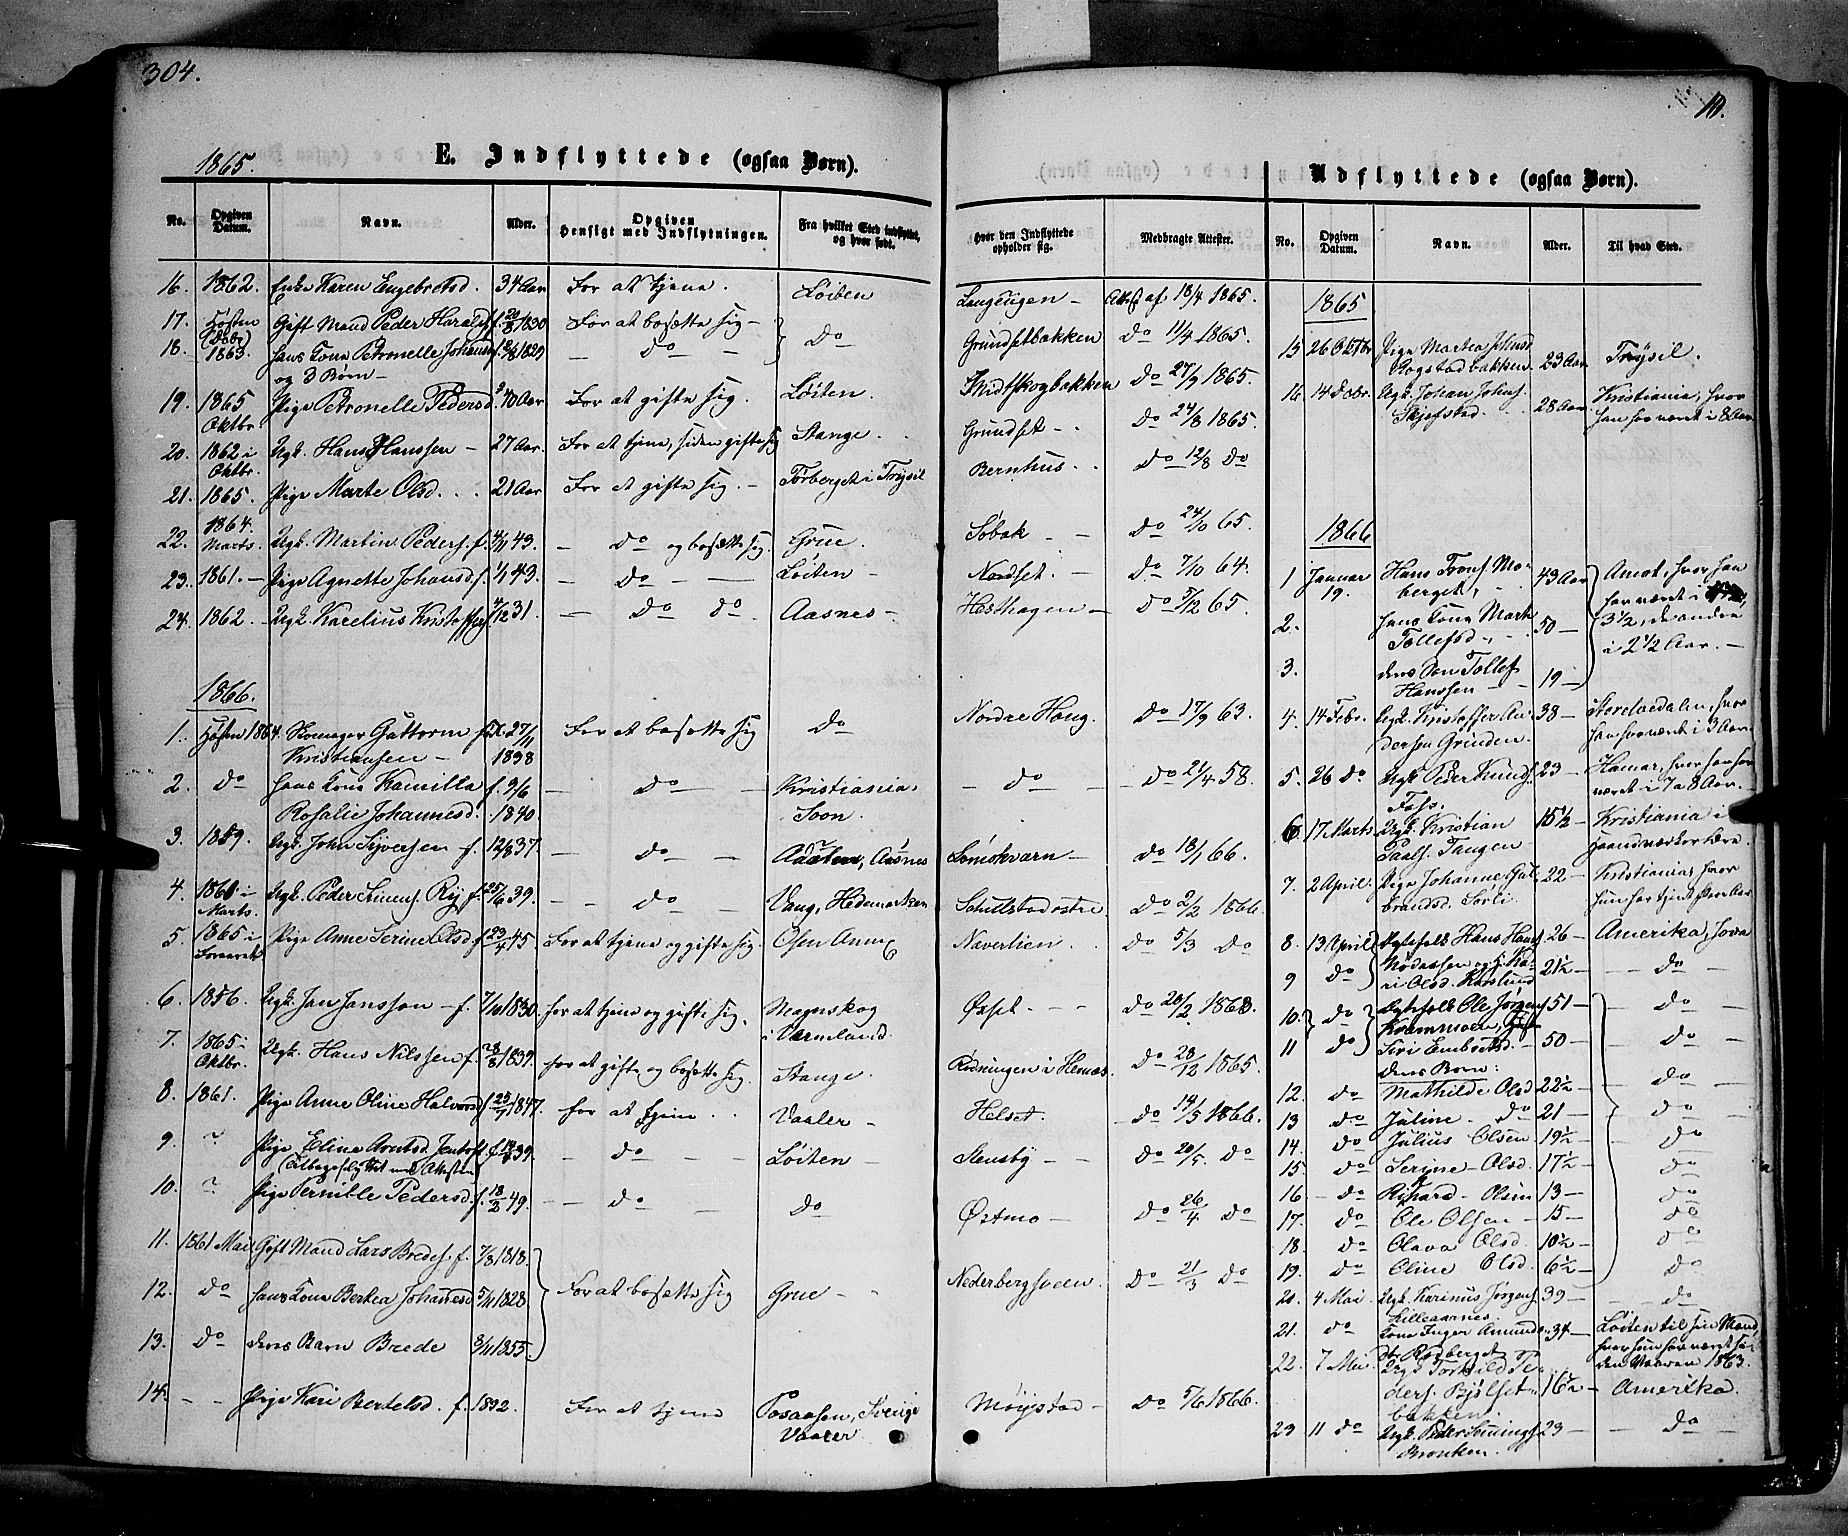 304.
1865.
E. Indflyttede (ogsaa Børn).
No. Opgiven Datum. Navn. Alder. Opgiven Hensigt med Indflytningen. Fra hvilket Sted indflyttet, og hvor født.
16. 1862. Enke Karen Engebretsd. 34 Aar For at tjene. Løiten
17. Høsten Gift Mand Peder Haralds. f. 20/8 1830 For at bosætte sig - } Do
18. 1863. hans Kone Petronelle Johansd. 1829 - Do -
og 3 Børn -
19. 1865 Oktbr. Pige Petronelle Pedersd. 40 Aar For at gifte sig. Løiten.
20. 1862 i Oktbr. Ugk. Hans Hanssen - 27 Aar For at tjene, siden gifte sig Stange.
21. 1865. Pige Marte Olsd. 21 Aar For at gifte sig. - Førberget i Trysil
22. 1864. Marts. Ugk. Martin Peders. f. 4/11 43. - Do og bosætte sig Grue.
23. 1861. - Pige Agnette Johansd. f. 1/1 43. - Do - Løiten -
24. 1862. - Ugk. Karelius Kristoffers. 4/12 31. - Do Do - Aasnes -
1866.
1. Høsten 1864. Skomager Guttorm Kristiansen - 27/11 1838 For at bosætte sig Do
2. Do hans Kone Kamilla Rosalie Johannesd. f. 9/6 1840. - Do - Kristiania, Soon.
3. 1859. Ugk. John Syversen - f. 12/8 37. - Do - Aasnes
4. 1861 i Marts. Ugk. Peder Simens. Ry f. 25/6 39. - Do - Vang, Hedemarken
5. 1865 i Foraaret Pige Anne Serine Olsd. f. 23/4 45 For at tjene og gifte sig. Osen Annex
6. 1856. Ugk. Jan Jansson - f. 7/10 1830. for at tjene og gifte sig. Mangskog i Värmland.
7. 1865 i Oktbr. Ugk. Hans Nilssen f. 28/8 1839. for at gifte og bosætte sig. Stange.
8. 1861. Pige Anne Oline Halvorsd. f. 1847. for at tjene Vaaler -
9. " Pige Eline Arntsd. f. 39. - Do - Løiten -
(tilbageflyttet med Attesten)
10. " Pige Pernille Pedersd. f. 18/2 49. - Do - Do
11. 1861 Mai Gift Mand Lars Bredes. f. 7/8 1818.
12. Do hans Kone Berthea Johannesd. 5/11 1828 For at bosætte sig Grue -
13. Do deres Barn Brede 8/11 1855.
14. - - Pige Kari Bertelsd. f. 1832. For at tjene Posaasen, Sverige Vaaler
Hvor den Indflyttede opholder sig. Medbragte Attester.
Attest af 18/4 1865.
Grundsetbakken Do 11/4 1865.
Skidskogbakken Do 27/9 1865.
Grundset - - Do 24/8 1865.
Bernhus. Do 12/8 Do
Søbak - - Do 24/10 65.
Nordset. - Do 7/10 64.
Hesthagen - Do 5/12 65.
Nordre Haug. Do 17/9 63.
- Do - - Do 21/4 58.
Lømskvarn - Do 18/1 66.
Do 2/2 1866.
Naverlien. Do 5/3 Do
Øxset. - Do 20/2 1868.
Rødningen i Hernæs. Do 28/12 1865.
Helset. - Do 14/5 1866.
Stensby - - Do 20/5. Do
Østmo - Do 26/4 Do
Nederbergsveen. Do 21/3 Do
Møystad - Do 5/6 1866.
Udflyttede (ogsaa Børn).
No. Opgiven Datum. Navn. Alder. Til hvad Sted.
1865
15 26 Oktbr. Pige Marthea Johnsd. Rogstadbakken 23 Aar Trysil.
16 14 Decbr. Ugk. Johan Johns. Skjefstad. 28 Aar Kristiania, hvor han har været i 8 Aar
1866
1 Januar 19. Hans Trons. Moberget, 43 Aar Amot, hvor han har været i
2. hans Kone Marte Tollefsd. 50 - 3 1/2, de andre i 2 1/2 Aar. -
3. deres Søn Tollef Hanssen - - 19 -
4. 14 Febr. Ugk. Kristoffer Andersen Grinden. 38 - Storelvedalen, hvor han har været i 3 Aar.
5. 26 Do Ugk. Peder Knuds. Foss. 23 - Hamar, hvor han har været i 7 a 8 Aar. -
6. 17 Marts Ugk. Kristian Paals. Tangen 15 1/2 - Kristiania i Haandværkerlære.
7. 2 April. Pige Johanne Gulbrandsd. Sørli. 22 - Kristiania, hvor hun har tjent flere Aar
8. 13 April Ægtefolk Hans Hans. 26 - Amerika, Iova
9 Do Kari Olsd. 21 1/2 - Do -
10. Do Ægtefolk Ole Jørgens. Krammoen, 51 - Do -
11 Do Siri Embretsd. - 50 - Do -
deres Børn:
12. Do Mathilde Olsd 22 1/2 - Do -
13 Do Juline - Do - 21 - Do -
14. Do Julius Olsen 19 1/2 - Do
15. Do Serine Olsd. 17 1/2 - Do
16 - Do Rikard - Olsen 13 - Do
17. Do Ole Olsen - 15 - Do
18. Do Olava Olsd. 10 1/2 - Do
19. Do Oline Olsd 6 1/2 - Do
20. 4 Mai Ugk. Karinus Jørgens. Lilleaarnes. 39 - - Do -
21. Do Kone Inger Amunds. Rødberget 34 - Løiten til sin Mand, hvor hun har været siden Vaaren 1863.
22. 7 Mai Ugk. Torkild Peders. Bjølsetbakken. 16 1/2 - Amerika.
23 11 Do Ugk. Peder Hennings. Bronken. 23 - Do -